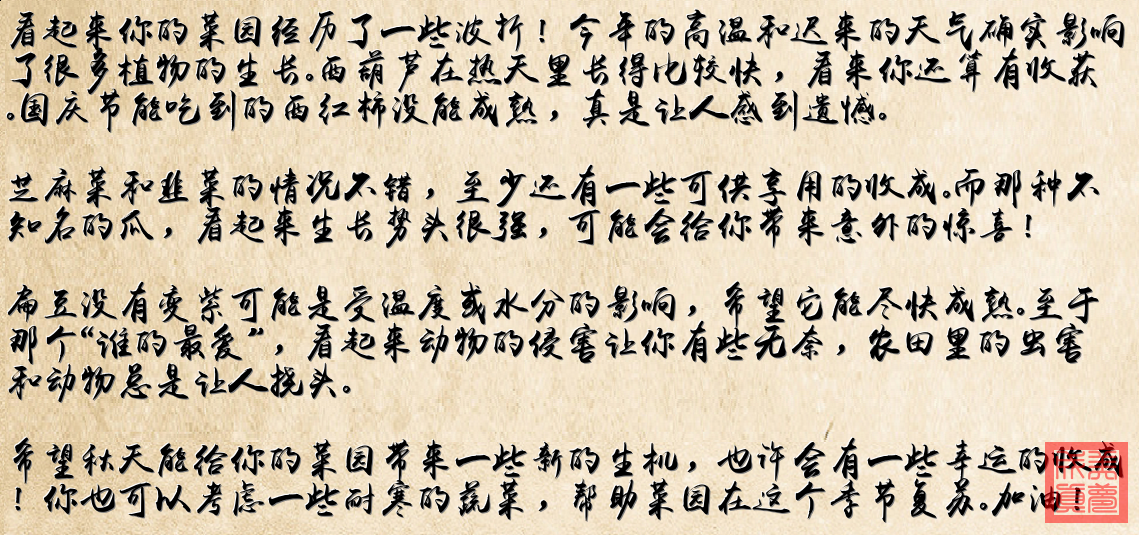 看起来你的菜园经历了一些波折！今年的高温和迟来的天气确实影响
了很多植物的生长。西葫芦在热天里长得比较快，看来你还算有收获
。国庆节能吃到的西红柿没能成熟，真是让人感到遗憾。
芝麻菜和韭菜的情况不错，至少还有一些可供享用的收成。而那种不
知名的瓜，看起来生长势头很强，可能会给你带来意外的惊喜！
扁豆没有变紫可能是受温度或水分的影响，希望它能尽快成熟。至于
那个“谁的最爱”，看起来动物的侵害让你有些无奈，农田里的虫害
和动物总是让人挠头。
希望秋天能给你的菜园带来一些新的生机，也许会有一些幸运的收成
！你也可以考虑一些耐寒的蔬菜，帮助菜园在这个季节复苏。加油！